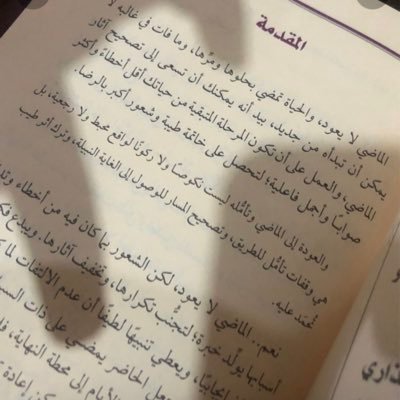 المقدمة
الماضي لا يعود، والحياة تمضي بحلوها ومرّها، وما فات في غالبه لا
يمكن أن تبدأه من جديد، بيد أنه يمكنك أن تسعى إلى تصحيح آثار
الماضي، والعمل على أن تكون المرحلة المتبقية من حياتك أقل أخطاءً وأكثر
صوابًا وأجمل فاعلية؛ لتحصل على خاتمة طيبة وشعور أكبر بالرضا.
والعودة إلى الماضي وتأمّله ليست نكوصًا ولا ركونًا لواقع محبط ولا رجعية، بل
هي وقفات تأمّل للطريق، وتصحيح المسار للوصول إلى الغاية النبيلة، وترك أثر طيب
تُحمَد عليه.
نعم.. الماضي لا يعود، لكن الشعور بما كان فيه من أخطاء
أسبابها يولّد خبرة؛ لتجنُّب تكرارها، وتخفيف آثارها. ويبدع
ويعطي تنبيهًا لطيفًا أن عدم الالتفات لما
يجعل الحاضر يمضي على ذات
الأيام إلى محطة النهاية،
إعادة